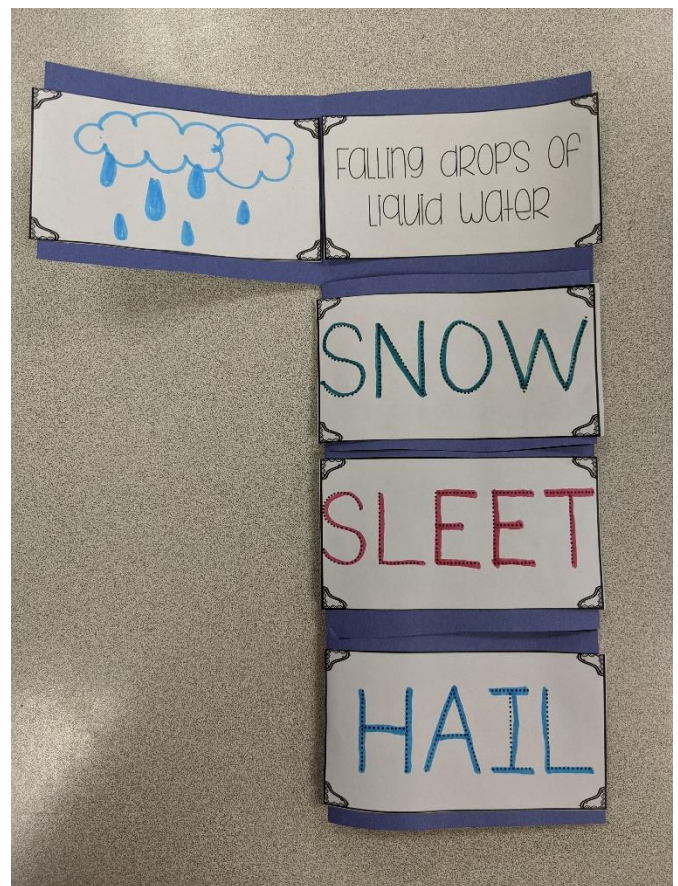 Falling drops of
Liquid water
SNOW
SLEET
HAIL